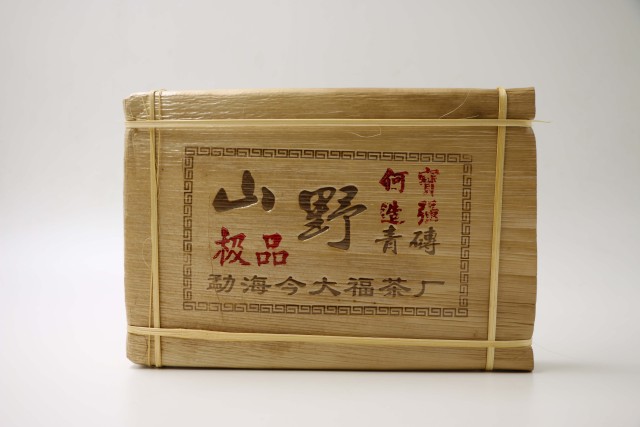 山野
极品
何寶
造強
青磚
勐海今大福茶厂